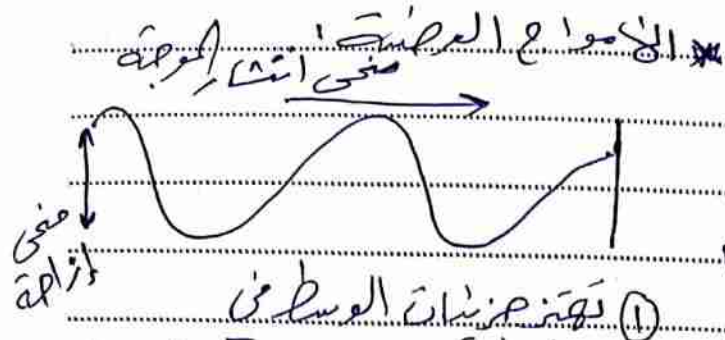 * الأمواج العرضية:
منحى انتشار الموجة
منحى
إزاحة
① تهتز جزيئات الوسط في